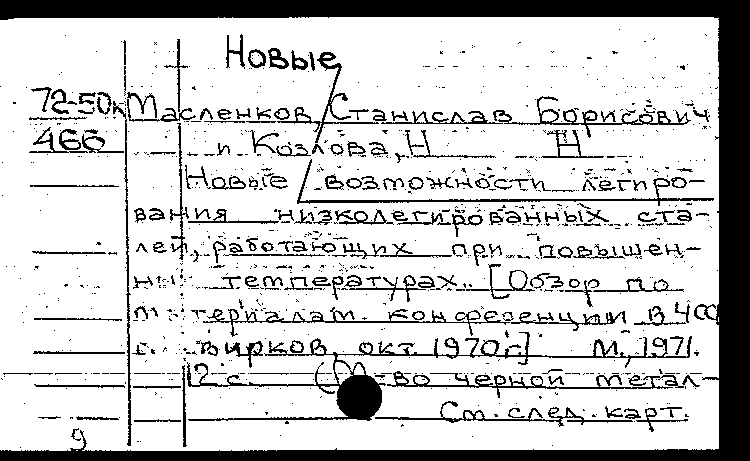 Новые
72-50к Масленков, Станислав Борисович
466 и Козлова, Н Н
Новые возможности легиро-
вания низколегированных ста-
лей, работающих при повышен-
температурах. [Обзор по
конференции в
окт. 1970г.] М., 1971.
12 с. (М-во черной метал-
См. след. карт.
9